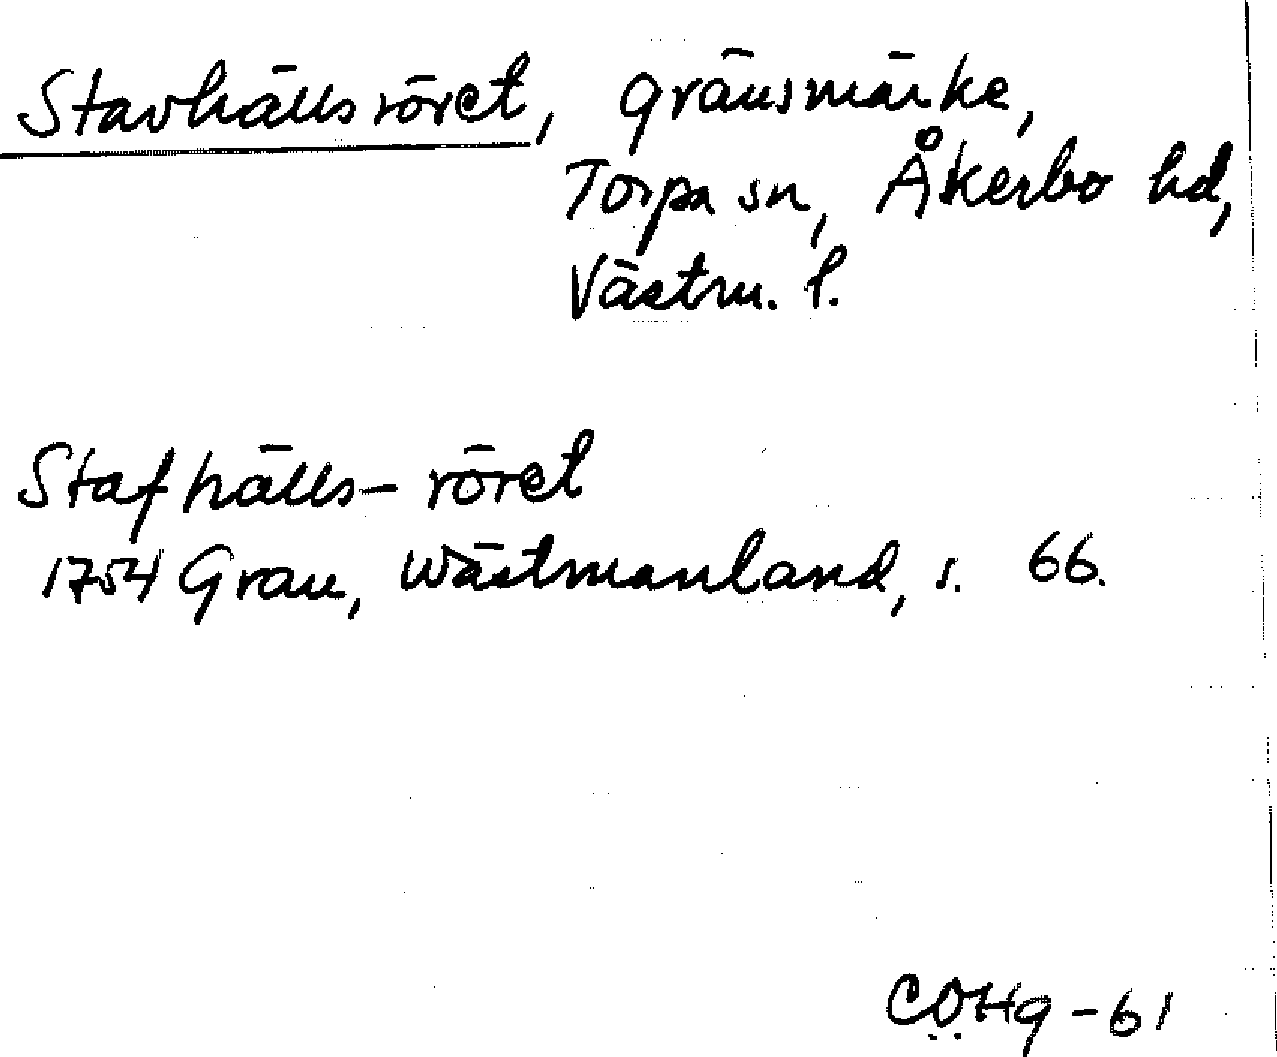 Stavhällsröret, gränsmärke,
Torpa sn, Åkerbo hd,
Västm. l.
Stafhälls-röret
1754 Grau, Wästmanland, s. 66.
CÖHg-61